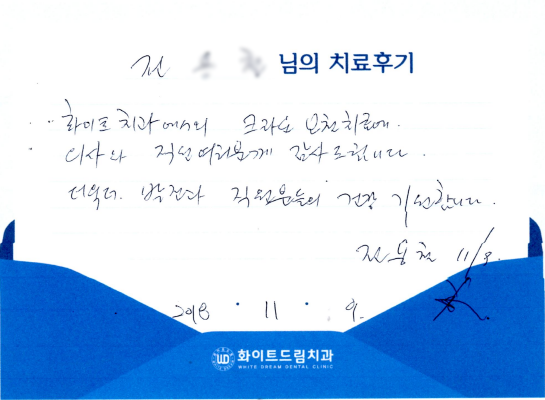 전 님의 치료후기
화이트 치과에서의 크라운 보철치료에.
의사와 직원여러분께 감사드립니다.
더욱더. 발전과 직원분들의 건강 기원합니다.
전용철 11/9.
2018 · 11 · 9.
WD 화이트드림치과
WHITE DREAM DENTAL CLINIC